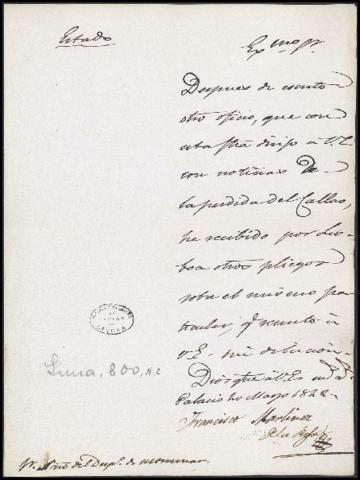 Estado
Exmo Sr.
Despues de escrito
otro oficio, que con
esta fha dirijo à V.E.
con noticias de
la perdida del Callao,
he recibido por Lis-
boa otros pliegos
sobre el mismo par-
ticular, q.e remito à
V.E.
Dios gue à V.E. m.s a.s
Palacio 20 Marzo 1822.
Francisco Martinez
de la Rosa
Lima, 800, N.2
Sr. Srio del Desp.o de